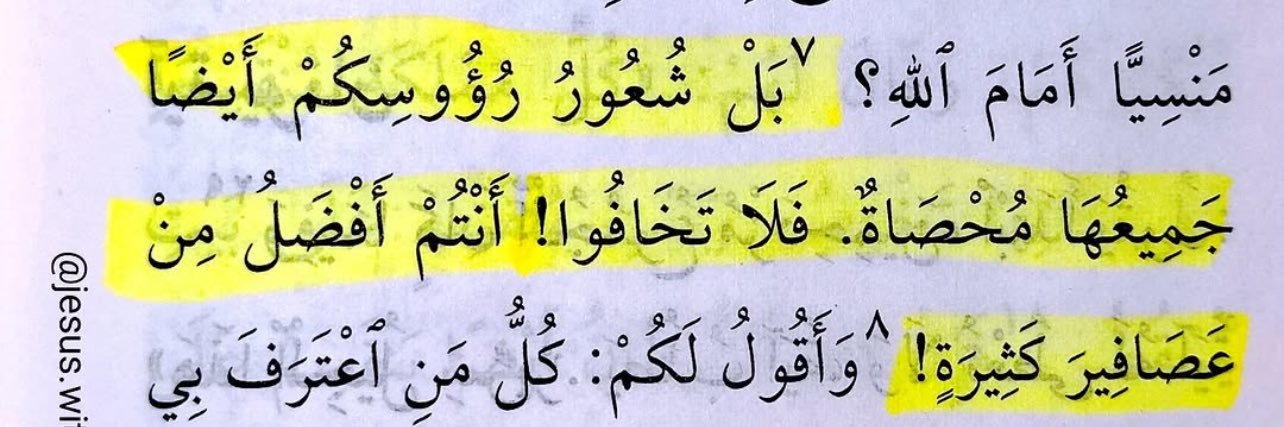 مَنْسِيًّا أَمَامَ ٱللهِ؟ ٧ بَلْ شُعُورُ رُؤُوسِكُمْ أَيْضًا
جَمِيعُهَا مُحْصَاةٌ. فَلَا تَخَافُوا! أَنْتُمْ أَفْضَلُ مِنْ
عَصَافِيرَ كَثِيرَةٍ! ٨ وَأَقُولُ لَكُمْ: كُلُّ مَنِ ٱعْتَرَفَ بِي
@jesus.wit